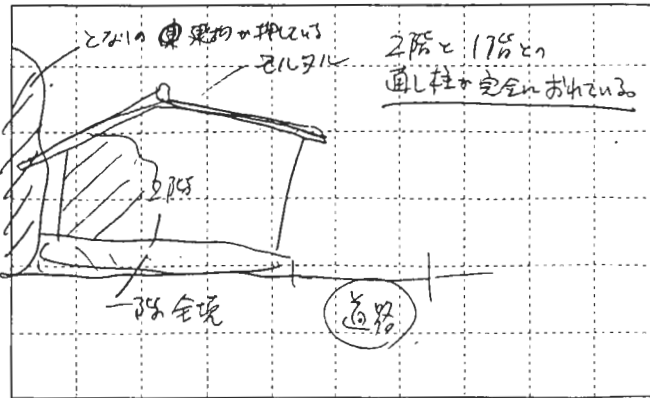 となりの建物が押している
モルタル
2階と1階との
通し柱が完全におれている。
2階
一階全壊
道路